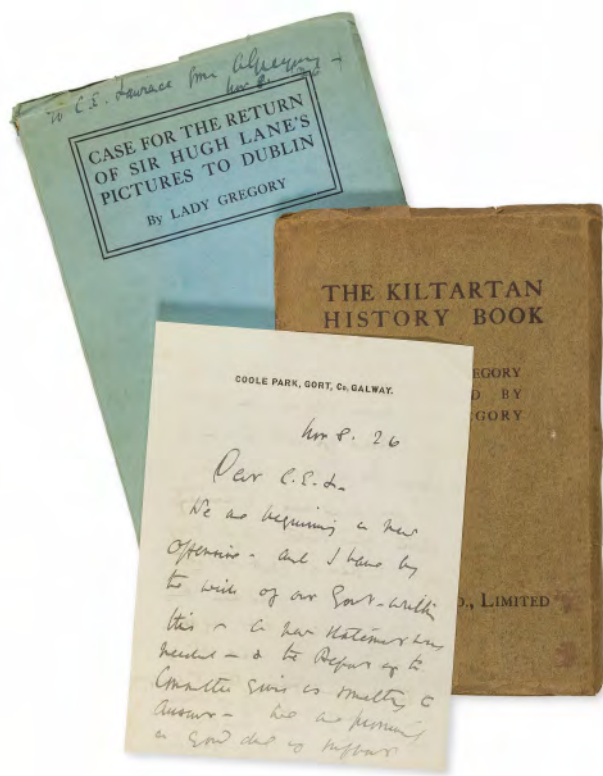 To C.E. Lawrence from AGregory
Nov 8. 26
CASE FOR THE RETURN
OF SIR HUGH LANE'S
PICTURES TO DUBLIN
By LADY GREGORY
THE KILTARTAN
HISTORY BOOK
EGORY
D BY
EGORY
O., LIMITED
COOLE PARK, GORT, Co. GALWAY.
Nov 8. 26
Dear C.E.L.
We are beginning a new
offensive - and I have by
the wish of our Govt - written
this - a new statement was
needed - & the Report of the
Committee gives us something to
answer - We are promised
a good deal of support